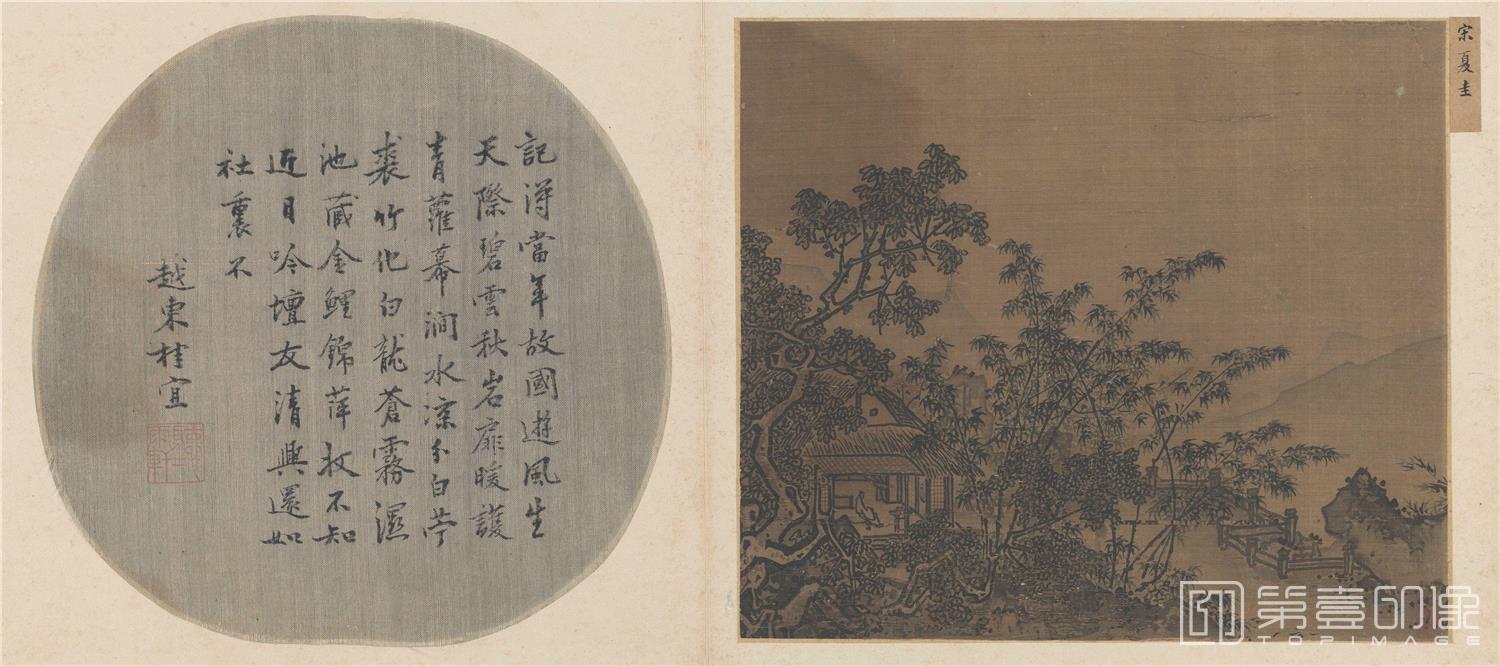 宋夏圭
記得當年故國遊風生
天際碧雲秋岩扉暖護
青蘿幕澗水凉分白苧
裘竹化白龍蒼霧濕
池藏金鯉錦萍收不知
近日吟壇友清興還如
社裏不
越東桂宜
第壹印像
TOPIMAGE